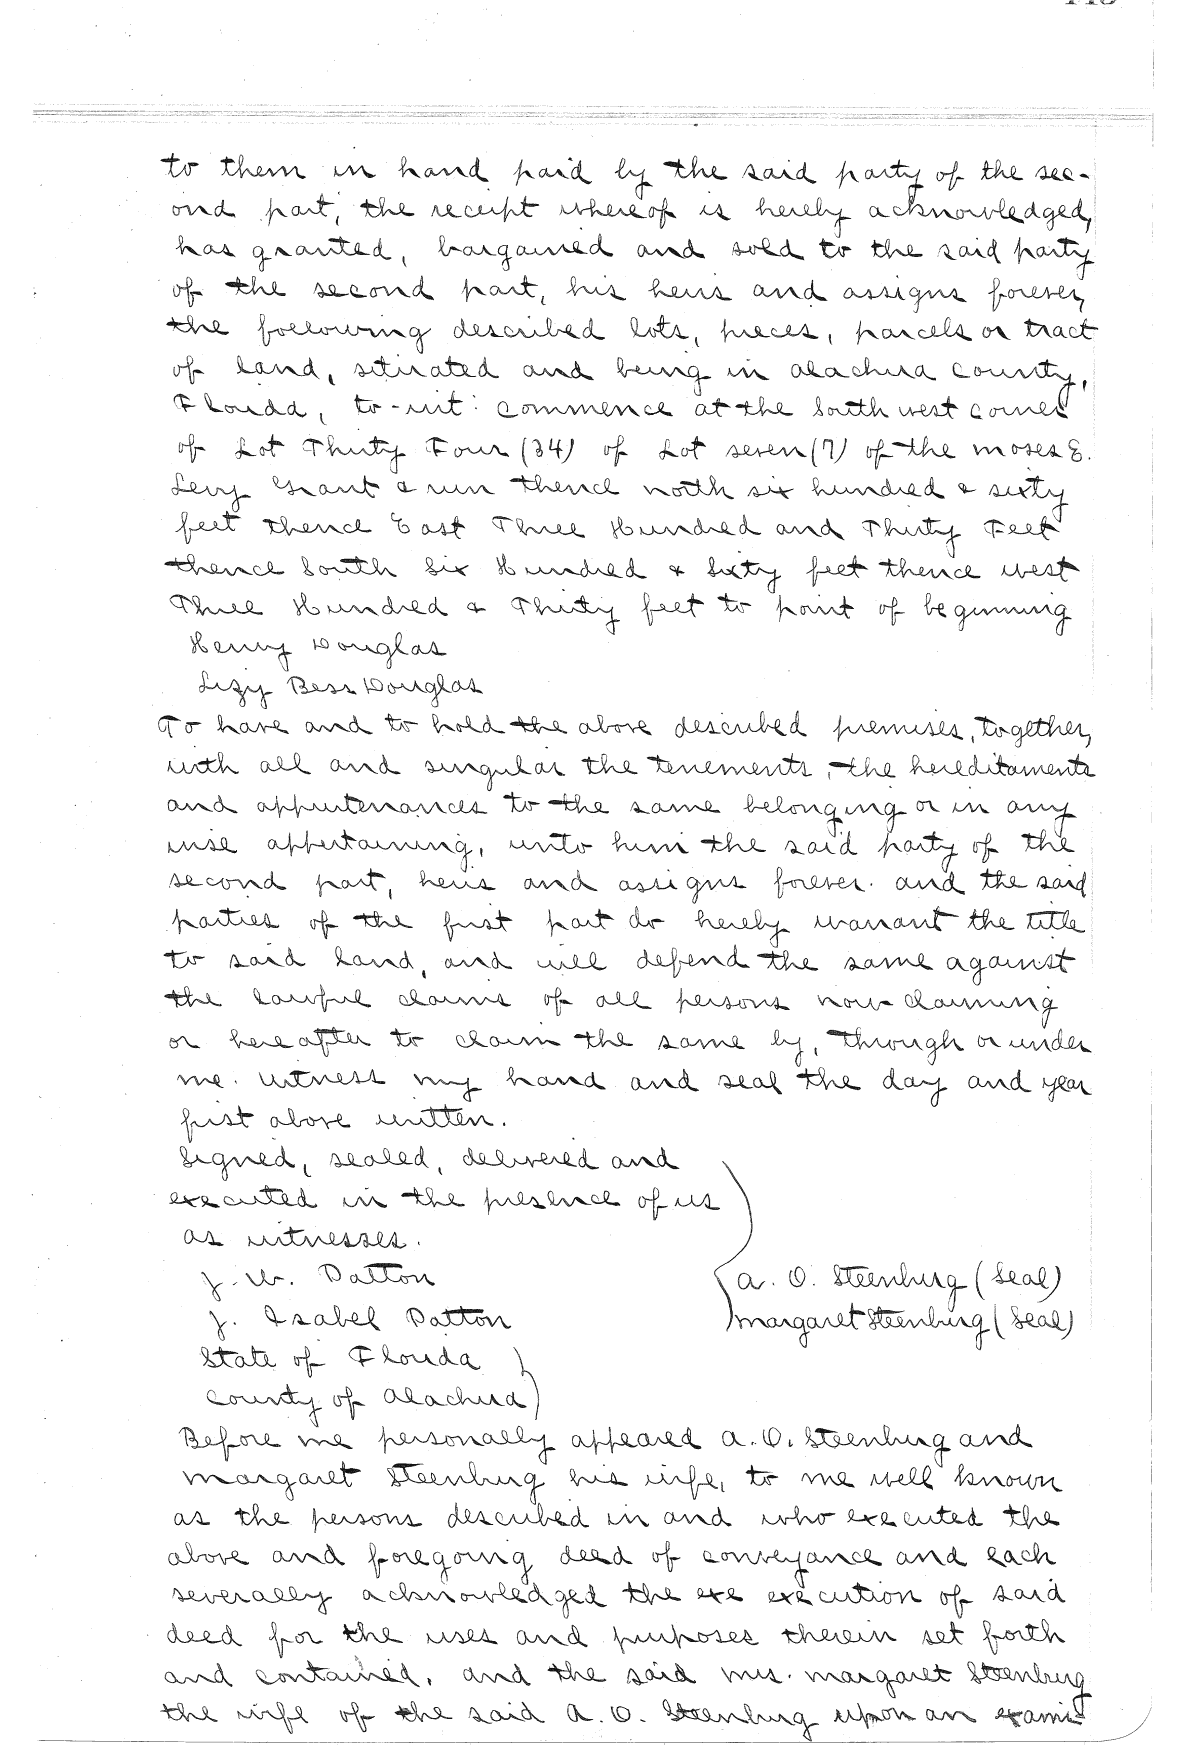 to them in hand paid by the said party of the sec-
ond part, the receipt whereof is hereby acknowledged,
has granted, bargained and sold to the said party
of the second part, his heirs and assigns forever,
the following described lots, pieces, parcels or tract
of land, situated and being in Alachua County,
Florida, to-wit: Commence at the South west corner
of Lot Thirty Four (34) of Lot seven (7) of the Moses E.
Levy Grant & run thence north six hundred & sixty
feet thence East Three Hundred and Thirty Feet
thence South Six Hundred & Sixty feet thence west
Three Hundred & Thirty feet to point of beginning
Henry Douglas
Lizy Bess Douglas
To have and to hold the above described premises, together,
with all and singular the tenements, the hereditaments
and appurtenances to the same belonging or in any
wise appertaining, unto him the said party of the
second part, heirs and assigns forever. and the said
parties of the first part do hereby warrant the title
to said land, and will defend the same against
the lawful claims of all persons now claiming
or hereafter to claim the same by, through or under
me. Witness my hand and seal the day and year
first above written.
Signed, sealed, delivered and
executed in the presence of us
as witnesses.
J. W. Patton
A. O. Steenburg (Seal)
J. Isabel Patton
Margaret Steenburg (Seal)
State of Florida
County of Alachua
Before me personally appeared A. O. Steenburg and
Margaret Steenburg his wife, to me well known
as the persons described in and who executed the
above and foregoing deed of conveyance and each
severally acknowledged the exe execution of said
deed for the uses and purposes therein set forth
and contained. and the said Mrs. Margaret Steenburg
the wife of the said A. O. Steenburg upon an exami-